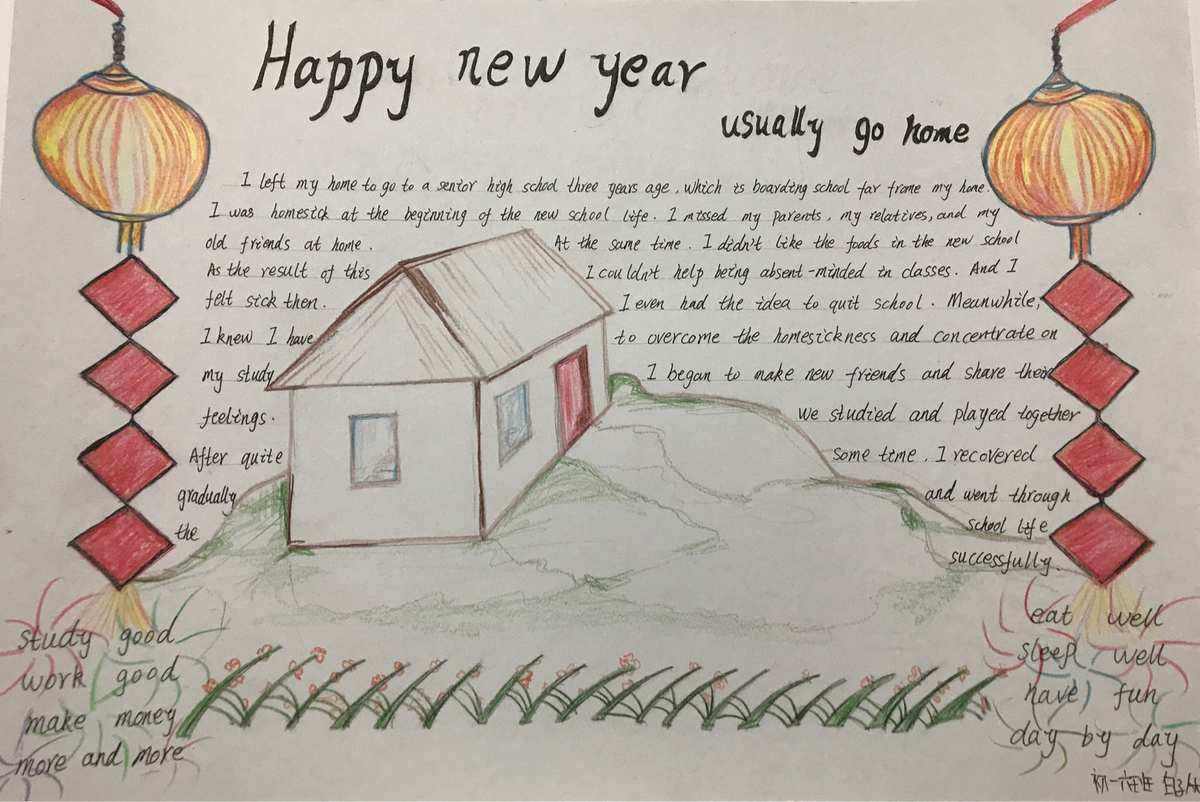 Happy new year
usually go home
I left my home to go to a senior high school three years age, which is boarding school far frome my home.
I was homesick at the beginning of the new school life. I missed my parents, my relatives, and my
old friends at home. At the same time. I didn't like the foods in the new school
As the result of this I couldn't help being absent-minded in classes. And I
felt sick then. I even had the idea to quit school. Meanwhile,
I knew I have to overcome the homesickness and concentrate on
my study I began to make new friends and share their
feelings. We studied and played together
After quite Some time. I recovered
gradually and went through
the school life
successfully.
study good
work good
make money
more and more
eat well
sleep well
have fun
day by day
初一六班